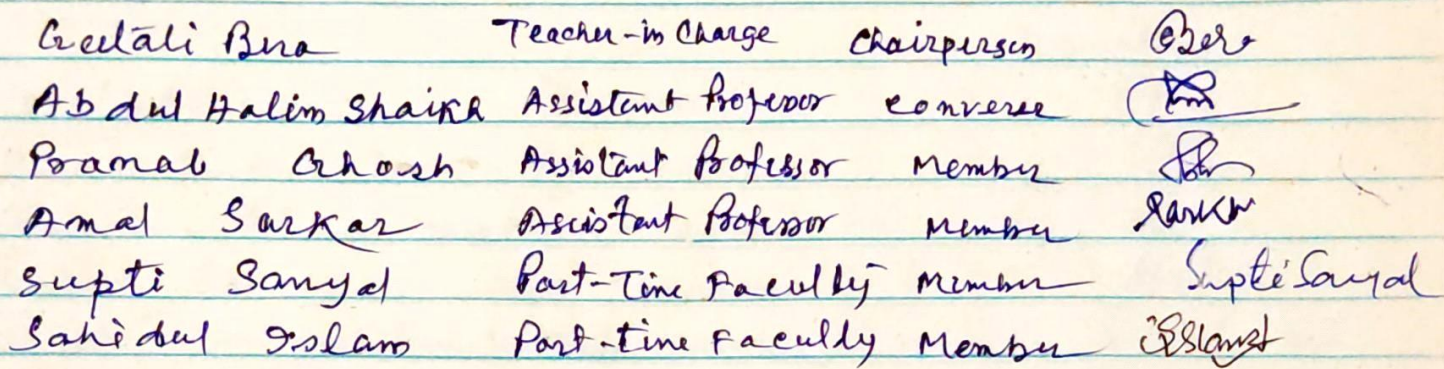 Geetali Bera Teacher-in Charge Chairperson GBera
Abdul Halim Shaikh Assistant Professor Convener
Pranab Ghosh Assistant Professor Member
Amal Sarkar Assistant Professor Member Sarkar
Supti Sanyal Part-Time Faculty Member Supti Sanyal
Sahidul Islam Part-time Faculty Member